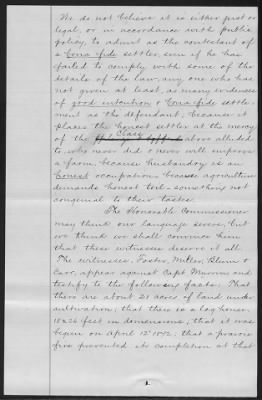 We do not believe it is either just or
legal, or in accordance with public
policy, to admit as the contestant of
a bona fide settler, even if he has
failed to comply with some of the
details of the law, any one who has
not given at least, as many evidences
of good intention & bona fide settle-
ment as the defendant; because it
places the honest settler at the mercy
of the class above alluded
to, who never did & never will improve
a farm, because husbandry is an
honest occupation & because agriculture
demands honest toil - something not
congenial to their tastes.
The Honorable Commissioner
may think our language severe, but
we think we shall convince him
that these witnesses deserve it all.
The witnesses, Foster, Miller, Blunt &
Carr, appear against Capt Munn and
testify to the following facts. That
there are about 21 acres of land under
cultivation; that there is a log house,
18 x 26 feet in dimensions; that it was
begun on April 12th 1872; that a prairie
fire prevented its completion at that
1.